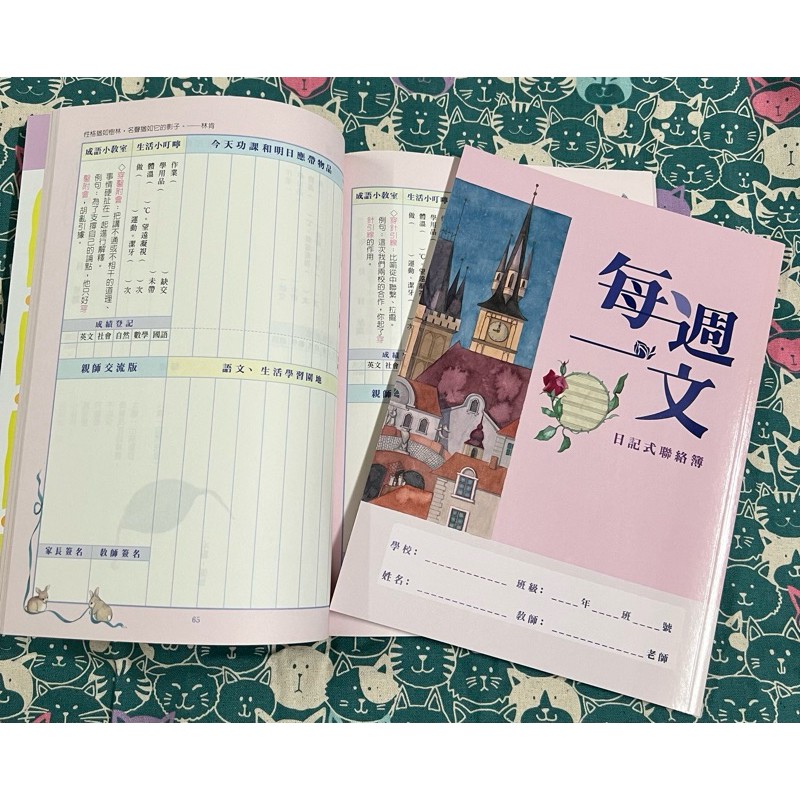 性格猶如樹林，名聲猶如它的影子。——林肯
成語小教室
生活小叮嚀
今天功課和明日應帶物品
作業（　）缺交
學用品（　）未帶
體溫（　）℃，望遠凝視（　）次
做（　）運動、潔牙（　）次
◇穿鑿附會：把講不通或不相干的道理、
事情硬扯在一起進行解釋。
例句：為了支撐自己的論點，他只好穿
鑿附會，胡亂引據。
成績登記
英文 社會 自然 數學 國語
親師交流版
語文、生活學習園地
家長簽名
教師簽名
65
成語小教室
生活小叮嚀
◇穿針引線：比喻從中聯繫、拉攏。
例句：這次我們兩校的合作，你起了穿
針引線的作用。
成績
英文 社會
親師
每週一文
日記式聯絡簿
學校：
班級：＿＿年＿＿班＿＿號
姓名：
教師：＿＿＿＿老師